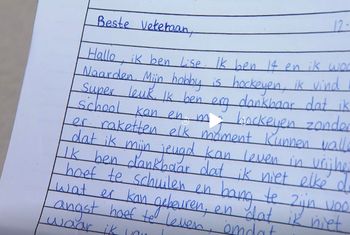 Beste veteraan,
Hallo, ik ben Lise. Ik ben 14 en ik
Naarden. Mijn hobby is hockeyen, ik vind h
super leuk. Ik ben erg dankbaar dat ik
school kan en m hockeyen zonder
er raketten elk moment kunnen valle
dat ik mijn jeugd kan leven in vrijhe
Ik ben dankbaar dat ik niet elke d
hoef te schuilen en bang te zijn voo
wat er kan gebeuren, en dat ik niet
angst hoef te leven, omdat
waar ik